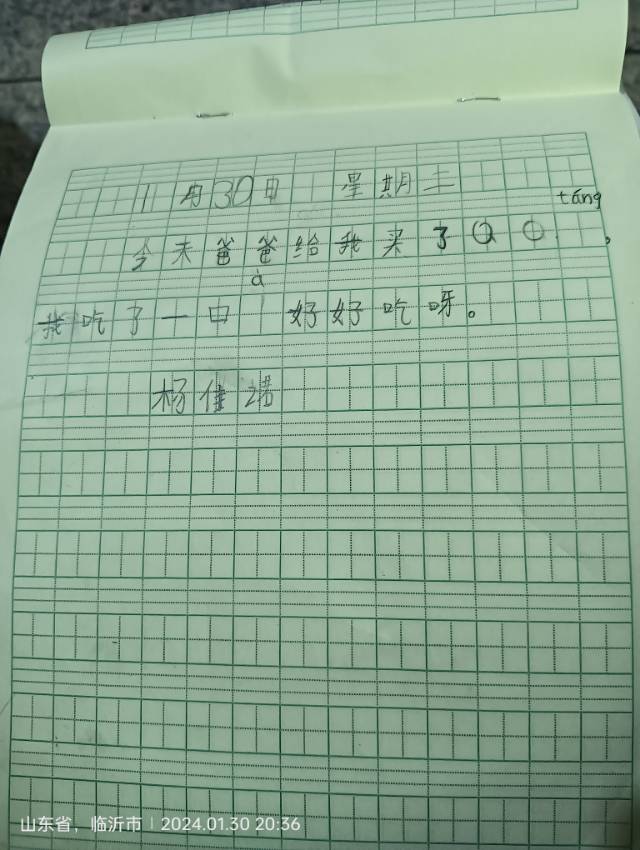 1月30日 星期土
táng
今未爸爸给我买了QQ ,
à
我吃了一口 好好吃呀。
杨佳诺
山东省，临沂市 | 2024.01.30 20:36